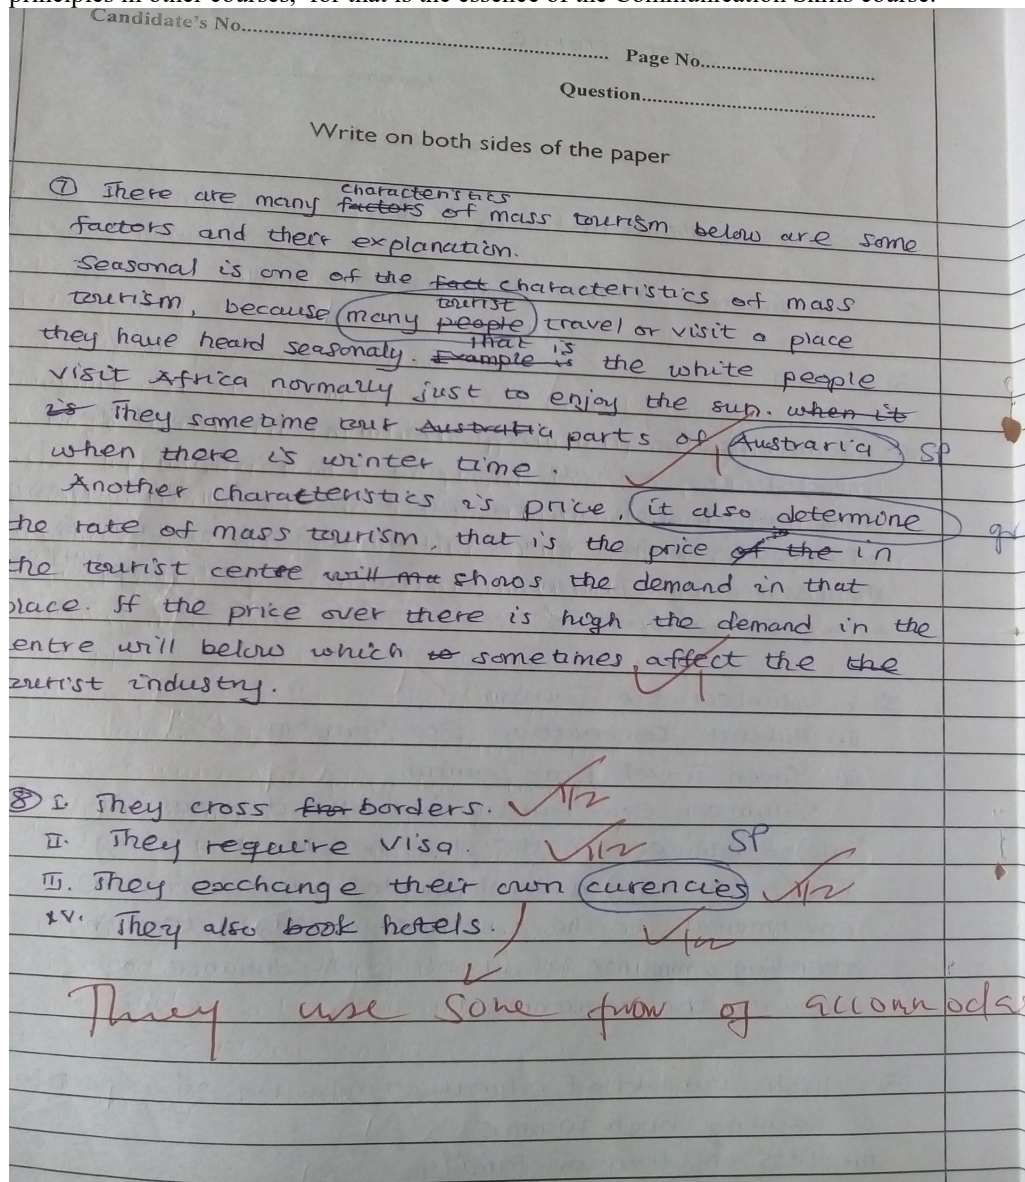 principles in other courses, for that is the essence of the Communication Skills course.
Candidate's No.......... Page No..........
Question..........
Write on both sides of the paper
⑦ There are many factors characteristics of mass tourism below are some
factors and their explanation.
Seasonal is one of the fact characteristics of mass
tourism, because many people tourist travel or visit a place
they have heard seasonaly. Example is That is the white people
visit Africa normally just to enjoy the sun. when it
is They sometime tour Australia parts of Austraria SP
when there is winter time. 1
Another characteristics is price, it also determine
the rate of mass tourism, that is the price of the in
the tourist centre will shows the demand in that
place. If the price over there is high the demand in the
entre will below which to sometimes affect the the
tourist industry. 1
⑧ I. They cross borders. 1/2
II. They requeire visa. 1/2 SP
III. They exchange their own curencies 1/2
IV. They also book hotels. 1/2
They use some of accommoda